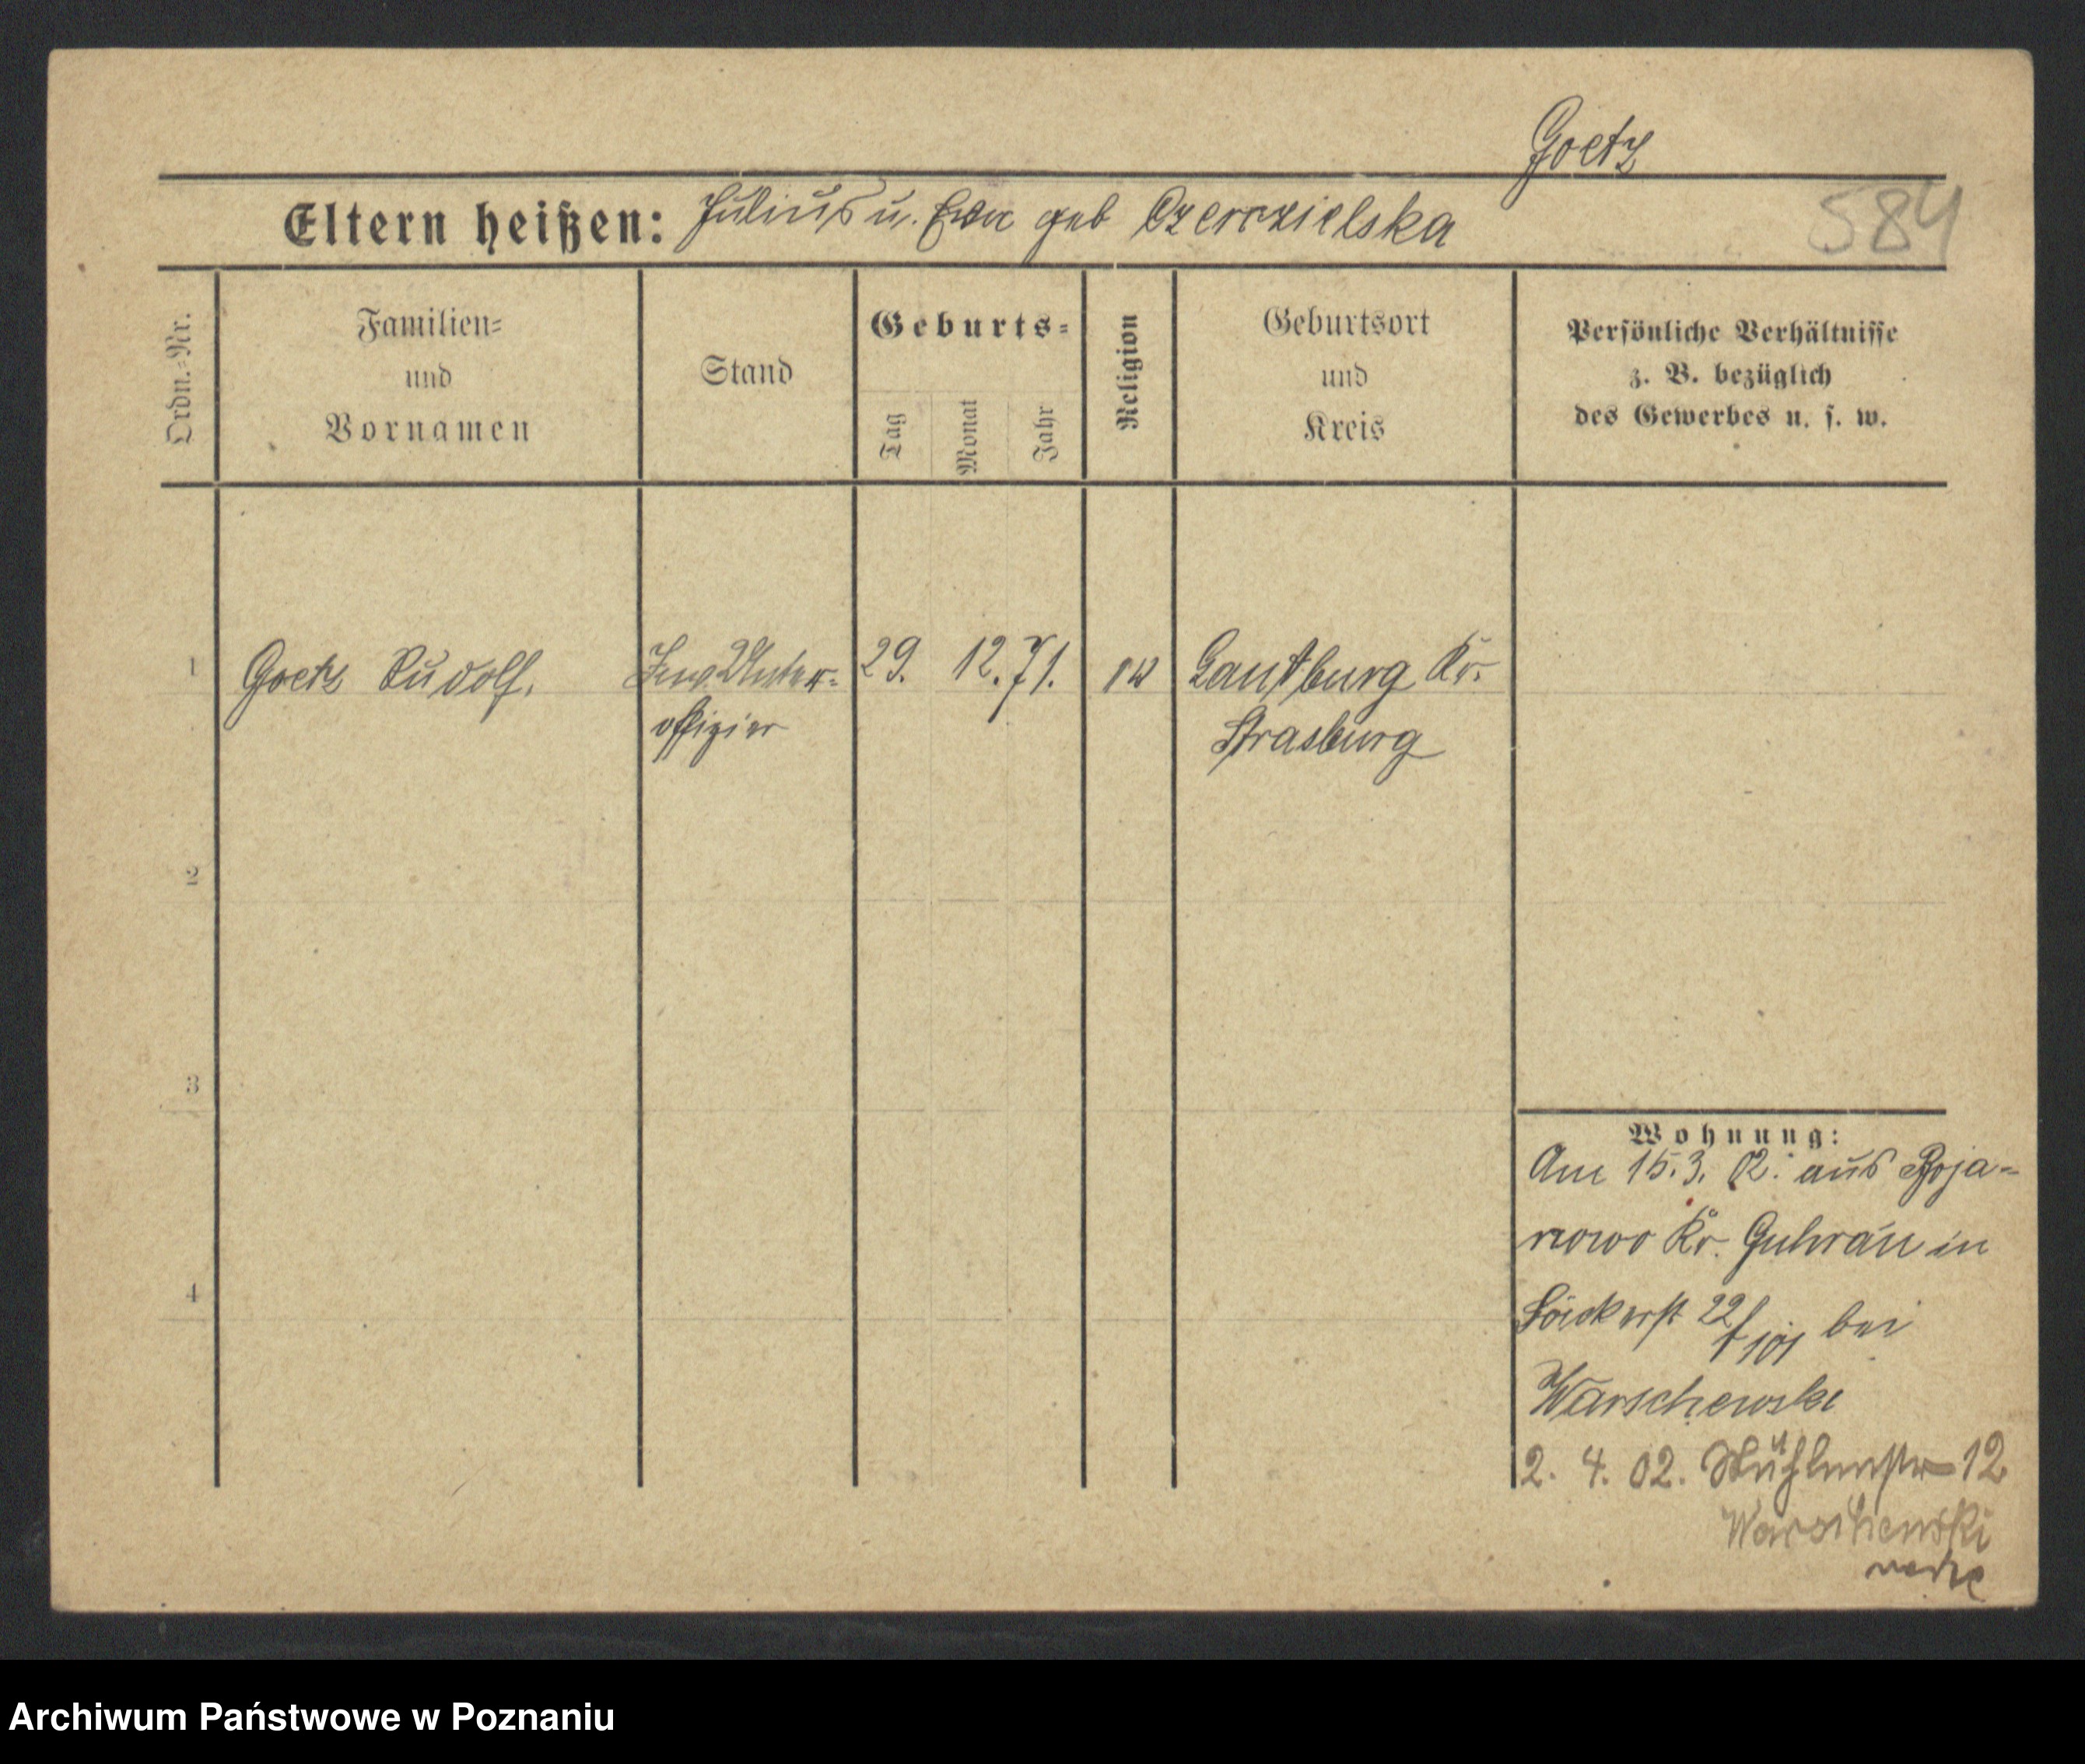 Goetz
Eltern heißen: Julius u. Eva geb Czerczielska
584
Ordn.=Nr.
Familien=
und
Vornamen
Stand
Geburts=
Tag
Monat
Jahr
Religion
Geburtsort
und
Kreis
Persönliche Verhältnisse
z. B. bezüglich
des Gewerbes u. s. w.
1 Goetz Rudolf. Inv. Unter= 29. 12. 71. Lautburg Kr.
offizier Strasburg
2
3
4
Wohnung:
Am 15.3.02. aus Boja=
nowo Kr. Guhrau in
22/101 bei
Warschewski
2. 4. 02. Mühlenstr 12
Warschewski
Archiwum Państwowe w Poznaniu